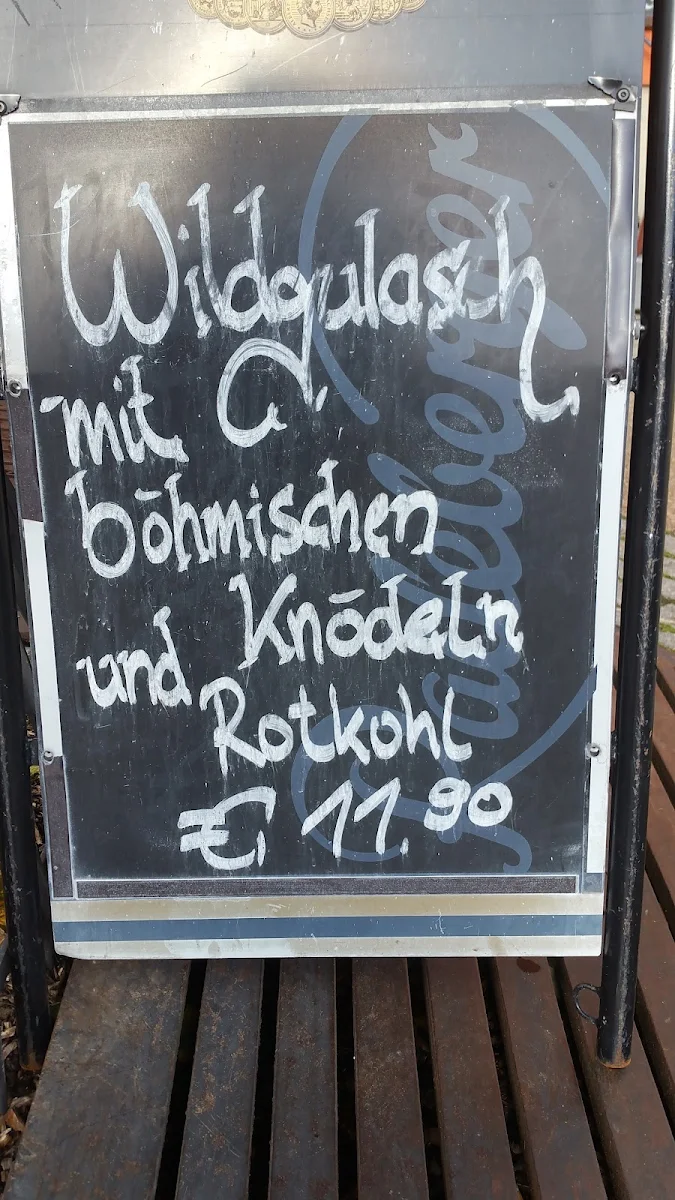 Wildgulasch
mit
böhmischen
und Knödeln
Rotkohl
€ 11.90
Radeberger